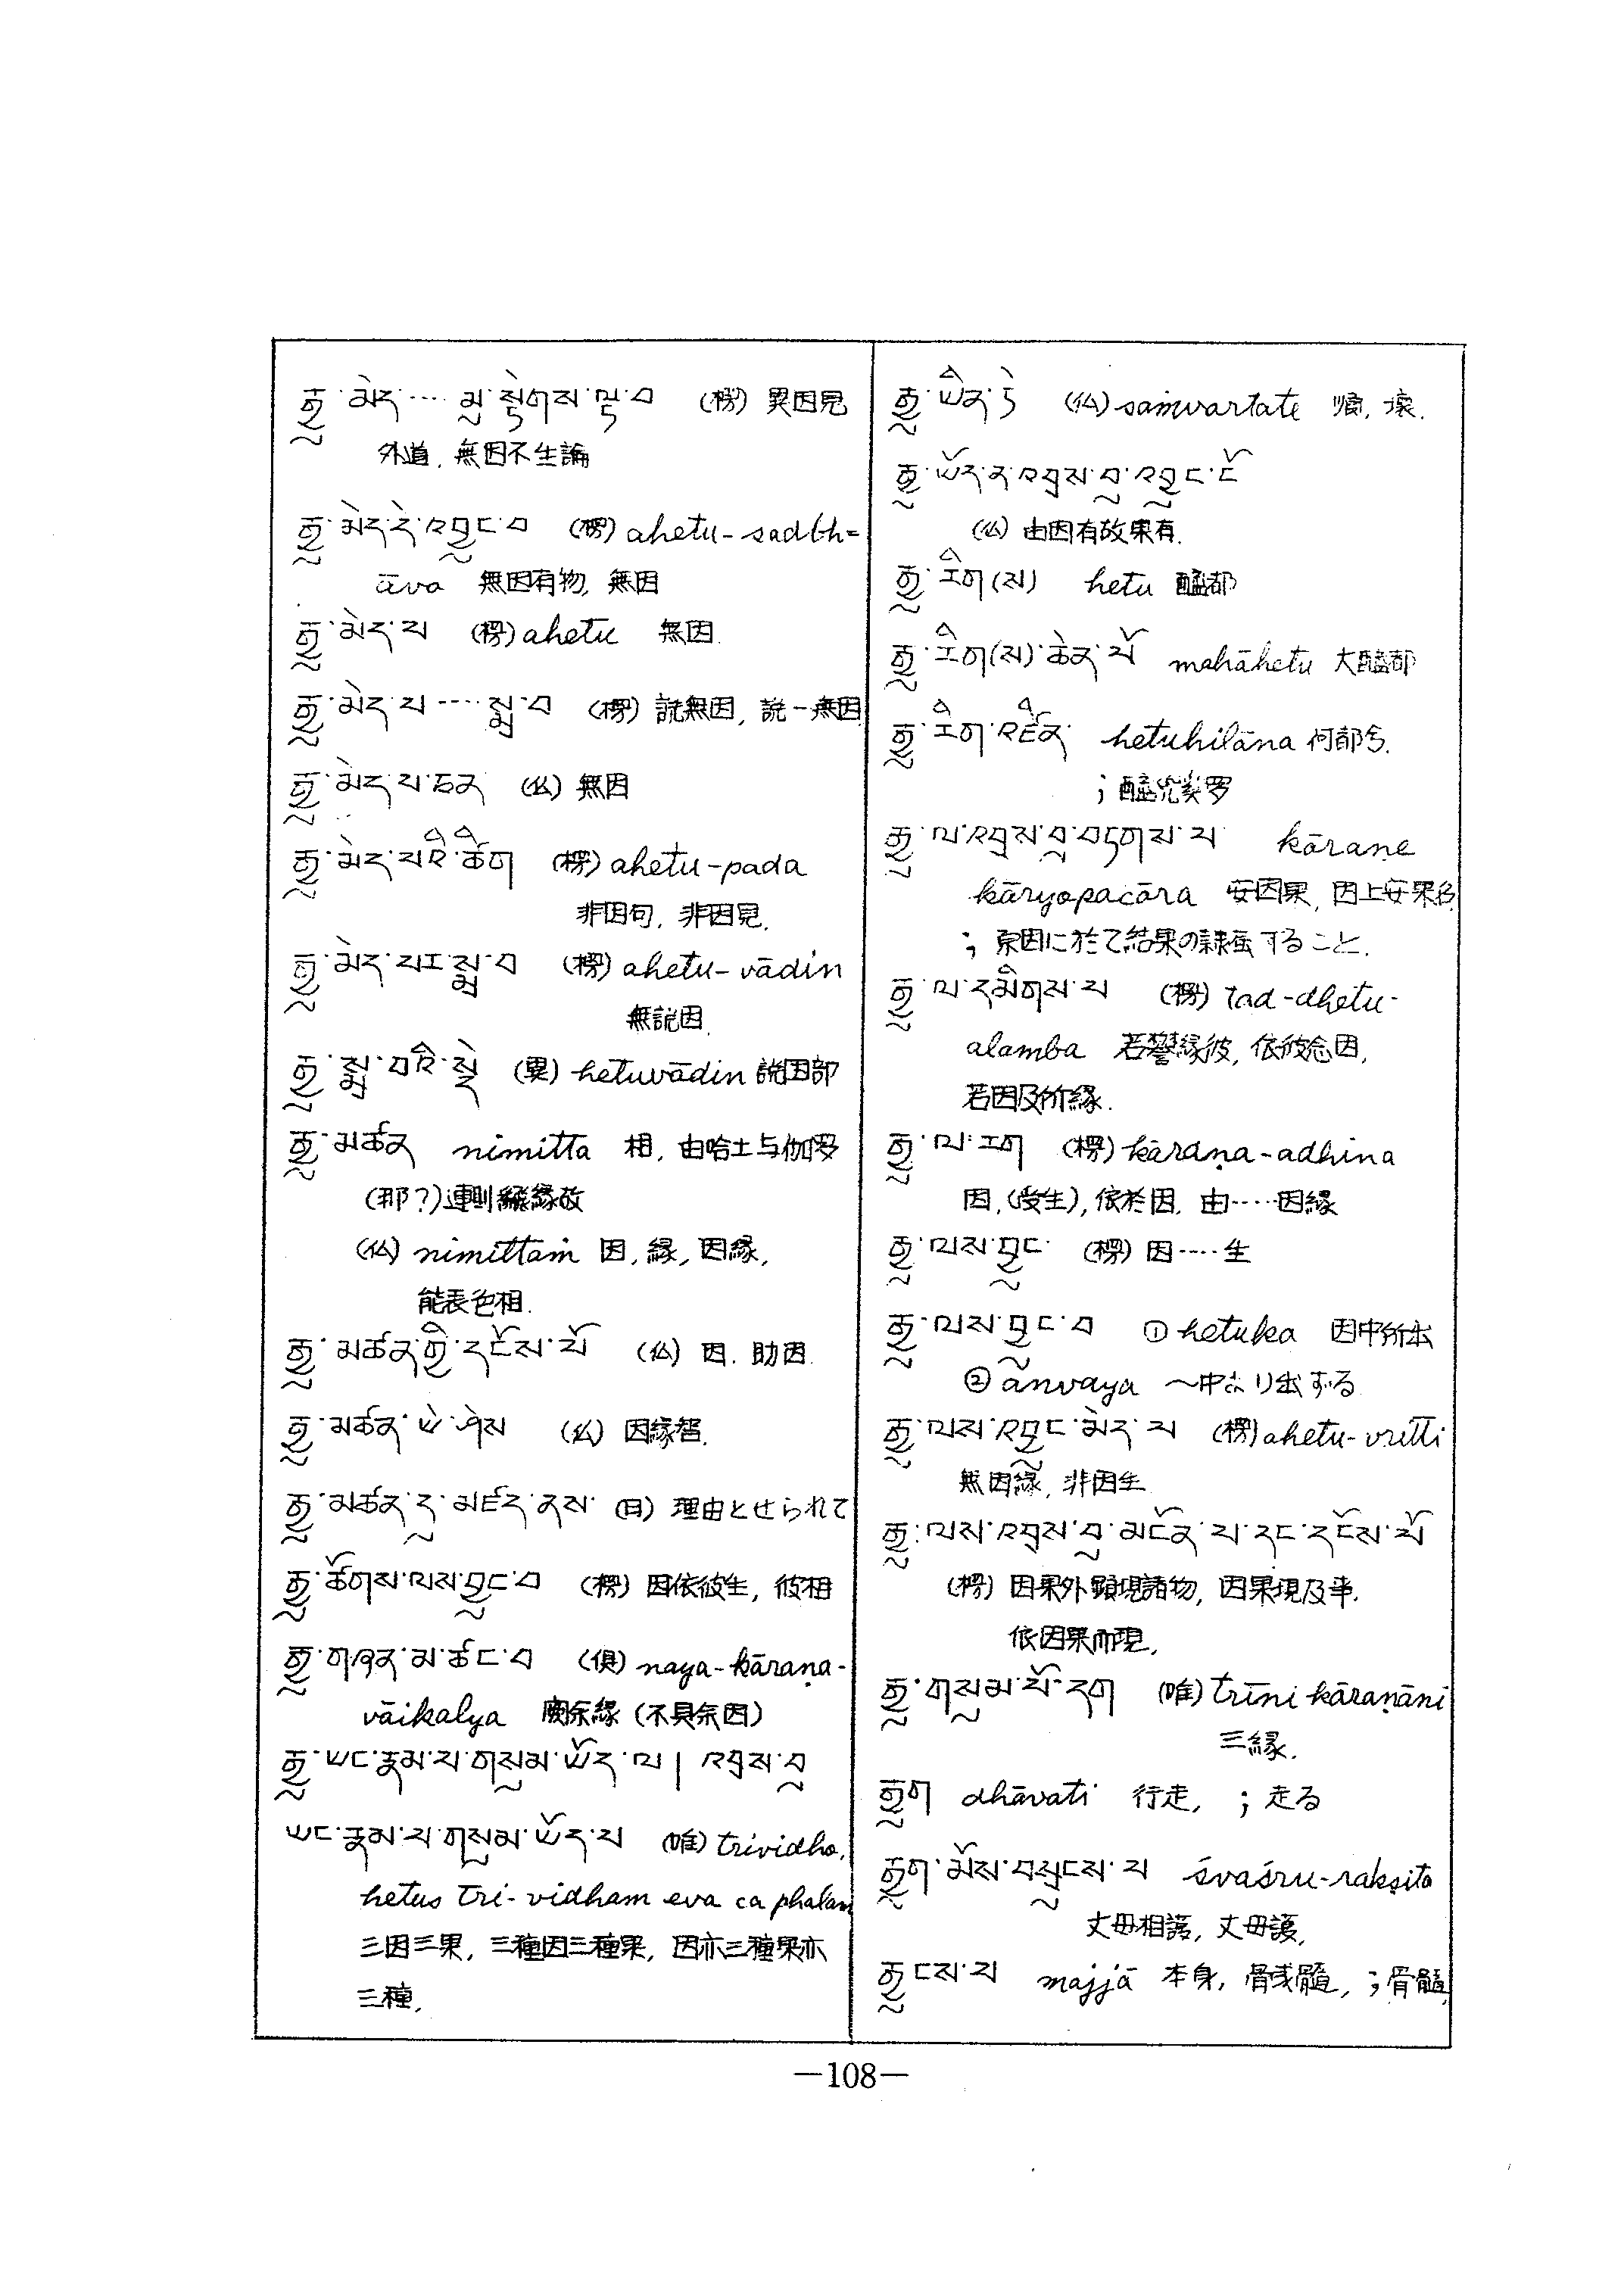 རྒྱུ་མེད་···· མུ་སྟེགས་ལྟ་བ (楞) 異因見
外道, 無因不生論
རྒྱུ་མེད་དེ་འབྱུང་བ (楞) ahetu-sadbh=
āva 無因有物, 無因
རྒྱུ་མེད་པ (楞) ahetu 無因.
རྒྱུ་མེད་པ ···· སྨྲ་བ (楞) 説無因, 説一無因
རྒྱུ་མེད་པ་ཅན (仏) 無因
རྒྱུ་མེད་པའི་ཚིག (楞) ahetu-pada
非因句, 非因見.
རྒྱུ་མེད་པར་སྨྲ་བ (楞) ahetu-vādin
無説因.
རྒྱུ་སྨྲ་བའི་སྡེ (異) hetuvādin 説因部
རྒྱུ་མཚན nimitta 相, 由哈土与伽罗
(那?)連則 縁故
(仏) nimittaṁ 因, 縁, 因縁,
能表色相.
རྒྱུ་མཚན་གྱི་དངོས་པོ (仏) 因. 助因.
རྒྱུ་མཚན་ཡེ་ཤེས (仏) 因縁智.
རྒྱུ་མཚན་དུ་མཛད་ནས་ (目) 理由とせられて
རྒྱུ་ཚོགས་ལས་བྱུང་བ (楞) 因依彼生, 彼相
རྒྱུ་གཞན་མ་ཚང་བ (倶) naya-kāraṇa-
vāikalya 闕余縁 (不具余因)
རྒྱུ་ཡང་རྣམ་པ་གསུམ་ཡོད་ལ། འབྲས་བུ
ཡང་རྣམ་པ་གསུམ་ཡོད་པ (唯) trividho,
hetus tri-vidham eva ca phalam
三因三果, 三種因三種果, 因亦三種果亦
三種,
རྒྱུ་ཡིན་ཏེ (仏) saṁvartate 順, 壊.
རྒྱུ་ཡོད་ན་འབྲས་བུ་འབྱུང་ངོ
(仏) 由因有故果有.
རྒྱུ་རིག(ས) hetu 醯都
རྒྱུ་རིག(ས)་ཆེན་པོ mahāhetu 大醯都
རྒྱུ་རིག་འཛིན་ hetuhilāna 何都兮.
; 醯兜 罗
རྒྱུ་ལ་འབྲས་བུ་བཏགས་པ kāraṇe
kāryopacāra 安因果, 因上安果名
; 原因に於て結果の隷属すること.
རྒྱུ་ལ་དམིགས་པ (楞) tad-dhetu-
alamba 若 縁彼, 依彼念因,
若因及所縁.
རྒྱུ་ལ་རག (楞) kāraṇa-adhina
因, (受生), 依於因. 由····因縁
རྒྱུ་ལས་བྱུང་ (楞) 因····生
རྒྱུ་ལས་བྱུང་བ ① hetuka 因中所出
② anvaya ～中より出ずる
རྒྱུ་ལས་འབྱུང་མེད་པ (楞) ahetu-vṛitti
無因縁, 非因生
རྒྱུ་ལས་འབྲས་བུ་མངོན་པ་དང་དངོས་པོ
(楞) 因果外顕現諸物, 因果現及事.
依因果而現,
རྒྱུ་གསུམ་པོ་དག (唯) trīni kāraṇāni
三縁.
རྒྱུག dhāvati 行走, ; 走る
རྒྱུག་མོས་བསྲུངས་པ śvaśru-rakṣita
丈母相護, 丈母護,
རྒྱུངས་པ majjā 本身, 骨或髄, ; 骨髄,
—108—